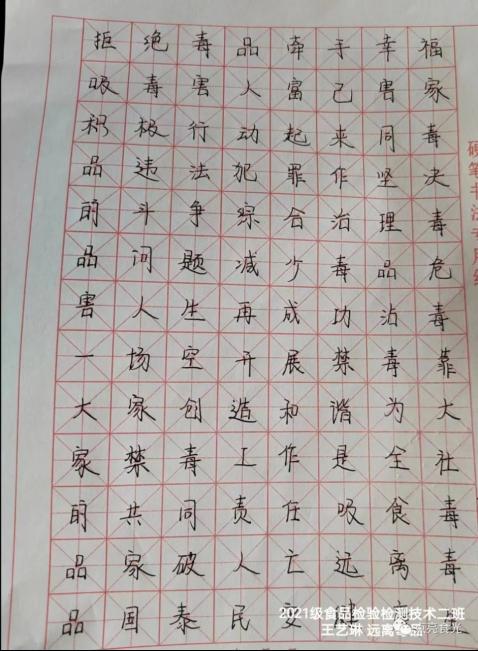 拒绝毒品牵手幸福
吸毒害人富己害家
积极行动起来同毒
品违法犯罪作坚决
的斗争综合治理毒
品问题减少毒品危
害人生再成功沾毒
一场空开展禁毒靠
大家创造和谐为大
家禁毒工作是全社
的共同责任吸食毒
品家破人亡远离毒
品国泰民安
硬笔书法专用纸
2021级食品检验检测技术二班
王艺琳 远离毒品